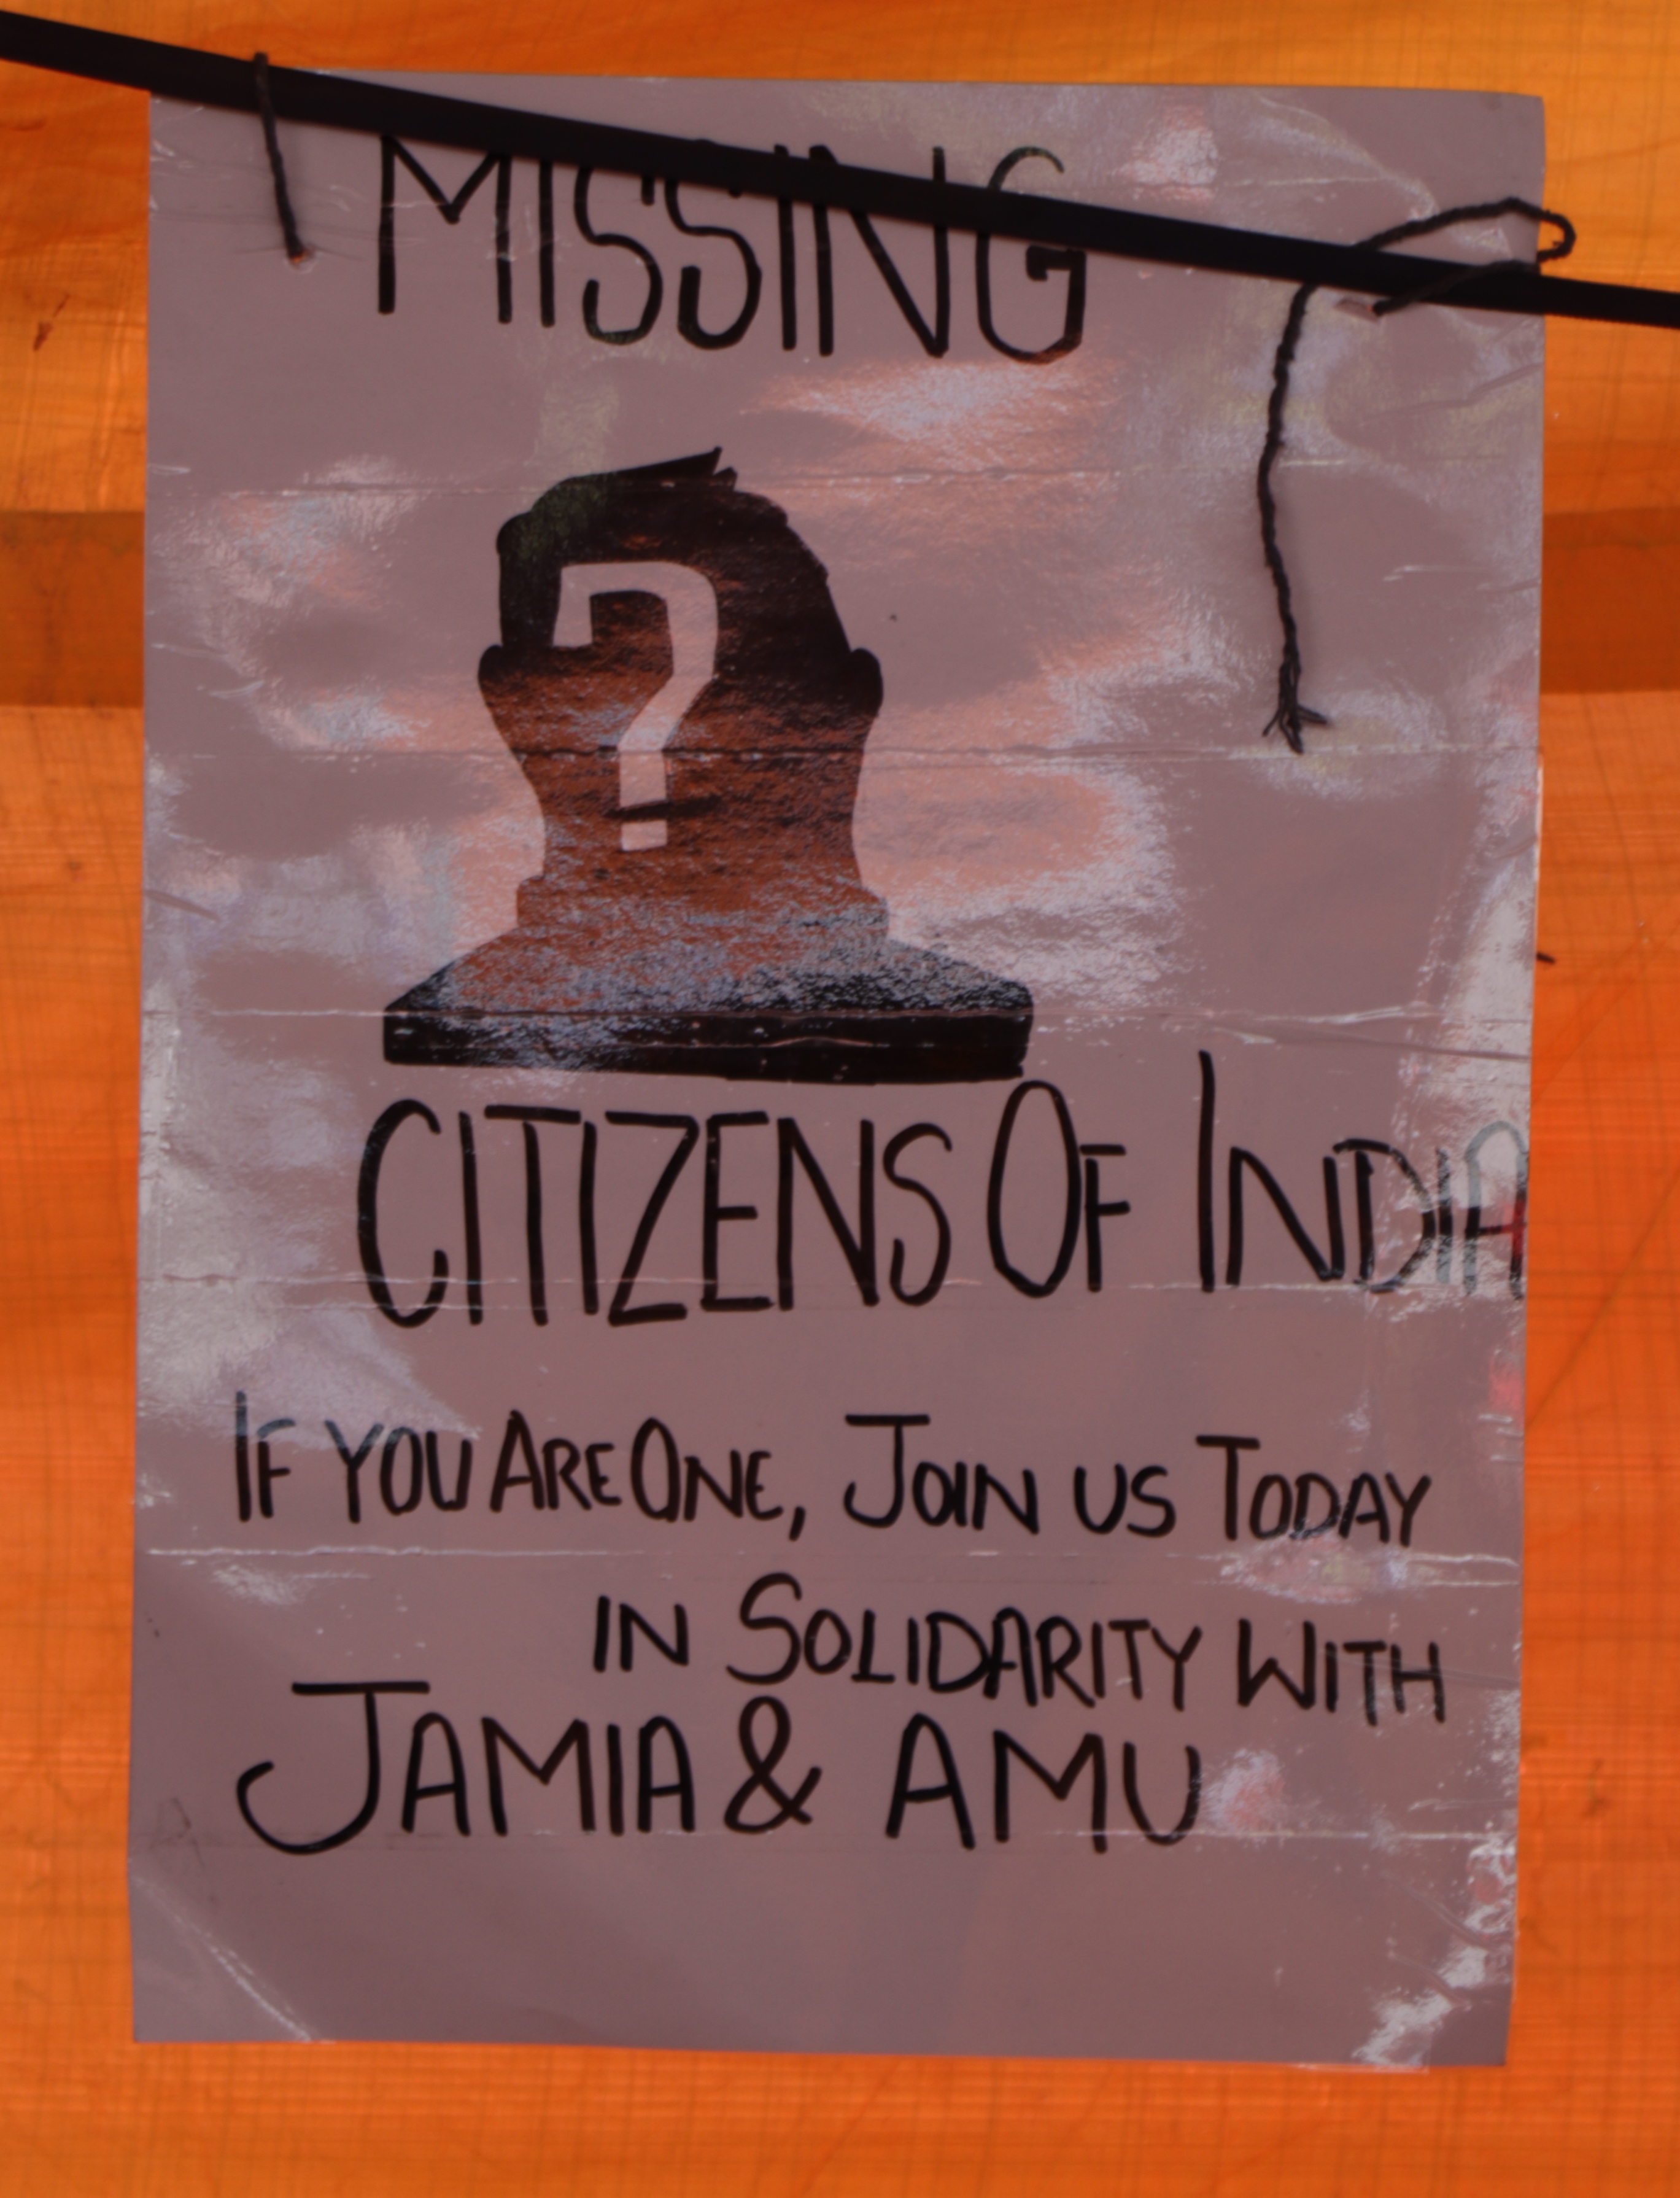 MISSING
?
CITIZENS OF INDIA
IF YOU ARE ONE, JOIN US TODAY
IN SOLIDARITY WITH
JAMIA & AMU